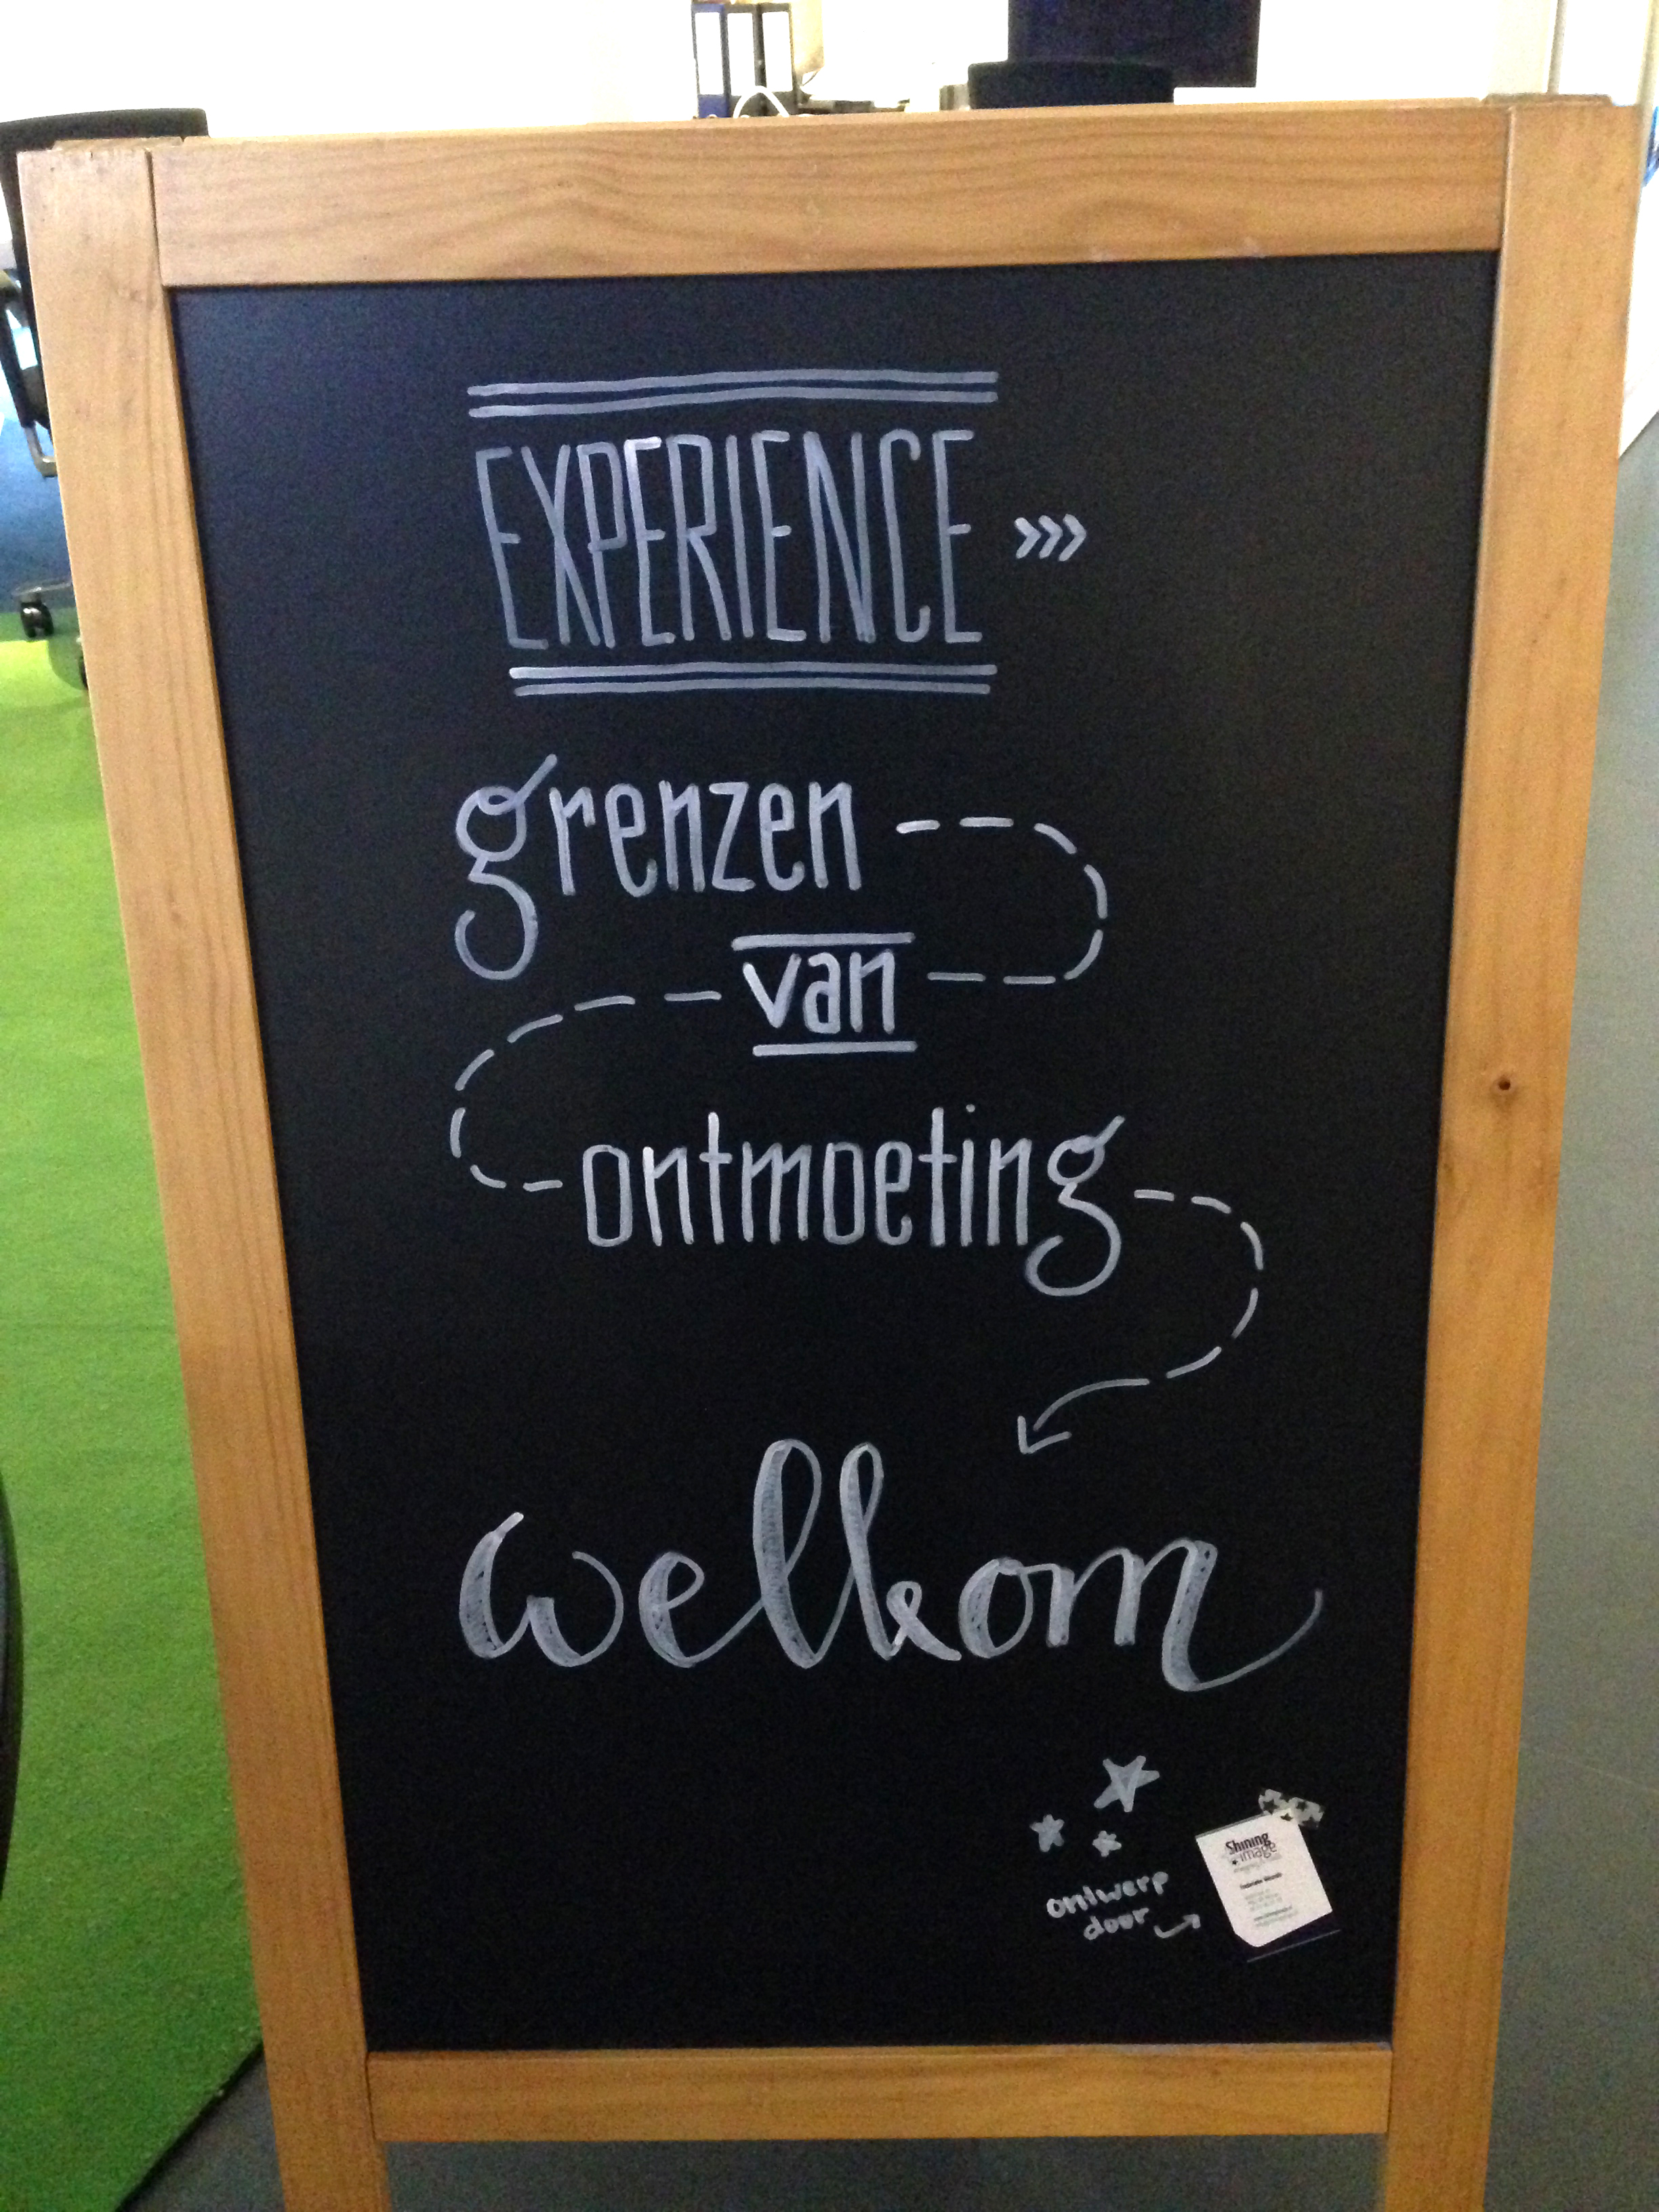 EXPERIENCE >>>
grenzen
van
ontmoeting
welkom
ontwerp
door
Shining
image